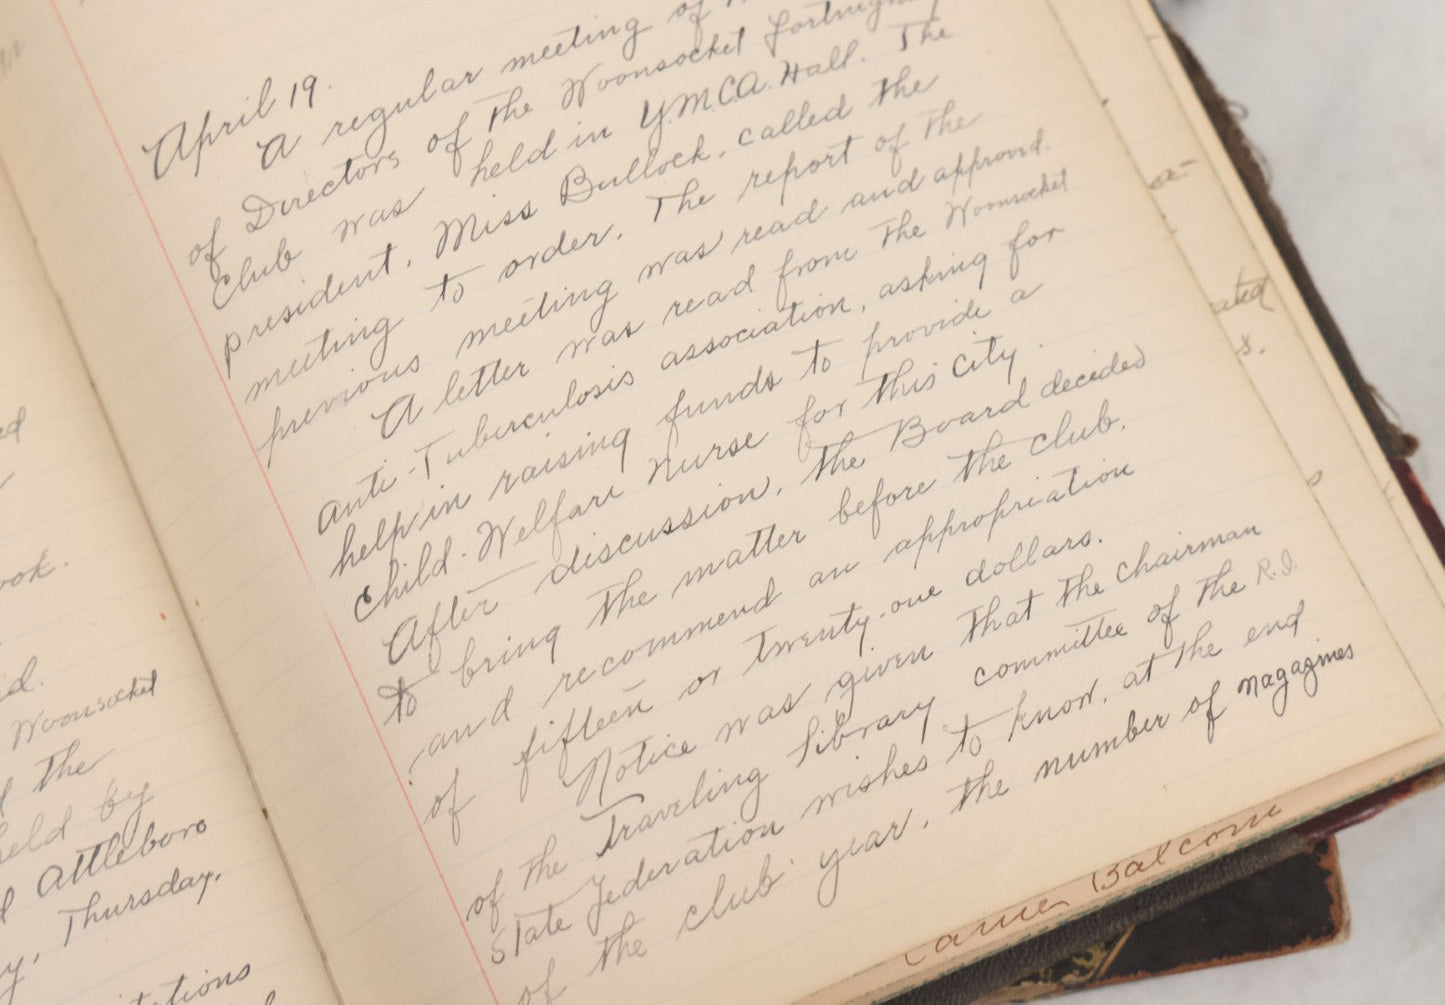 April 19.
A regular meeting of
of Directors of the Woonsocket Fortnightly
Club was held in Y.M.C.A. Hall. The
president, Miss Bullock, called the
meeting to order. The report of the
previous meeting was read and approved.
A letter was read from the Woonsocket
Anti-Tuberculosis association, asking for
help in raising funds to provide a
Child-Welfare nurse for this city.
After discussion, the Board decided
to bring the matter before the club.
and recommend an appropriation
of fifteen or twenty-one dollars.
Notice was given that the chairman
of the Traveling library committee of the R.I.
State Federation wishes to know, at the end
of the club year, the number of magazines
ook.
d.
Woonsocket
the
held by
Attleboro
Thursday,
ated
s.
Balcom